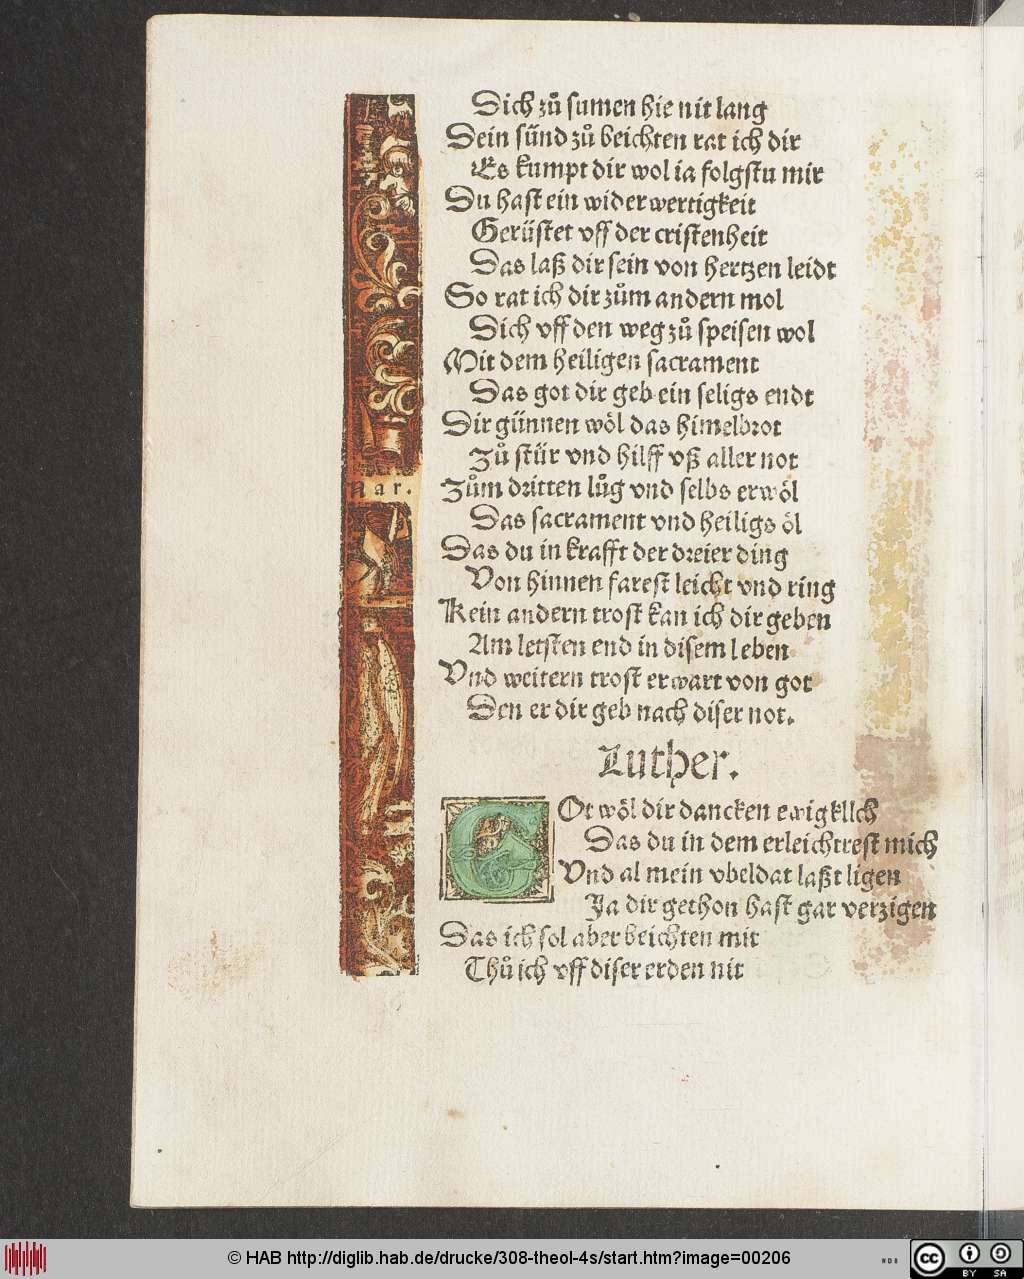 Dich zů sumen hie nit lang
Dein sünd zů beichten rat ich dir
Es kumpt dir wol ia folgstu mir
Du hast ein wider wertigkeit
Gerüstet vff der cristenheit
Das laß dir sein von hertzen leidt
So rat ich dir zům andern mol
Dich vff den weg zů speisen wol
Mit dem heiligen sacrament
Das got dir geb ein seligs endt
Dir günnen wöl das himelbrot
Zů stür vnd hilff vß aller not
Nar.
Zům dritten lůg vnd selbs erwöl
Das sacrament vnd heiligs öl
Das du in krafft der dreier ding
Von hinnen farest leicht vnd ring
Kein andern trost kan ich dir geben
Am letsten end in disem leben
Vnd weitern trost erwart von got
Den er dir geb nach diser not.
Luther.
GOt wöl dir dancken ewigkllch
Das du in dem erleichtrest mich
Vnd al mein vbeldat laßt ligen
Ja dir gethon hast gar verzigen
Das ich sol aber beichten mit
Thů ich vff diser erden nit
© HAB http://diglib.hab.de/drucke/308-theol-4s/start.htm?image=00206
WDB
cc BY SA